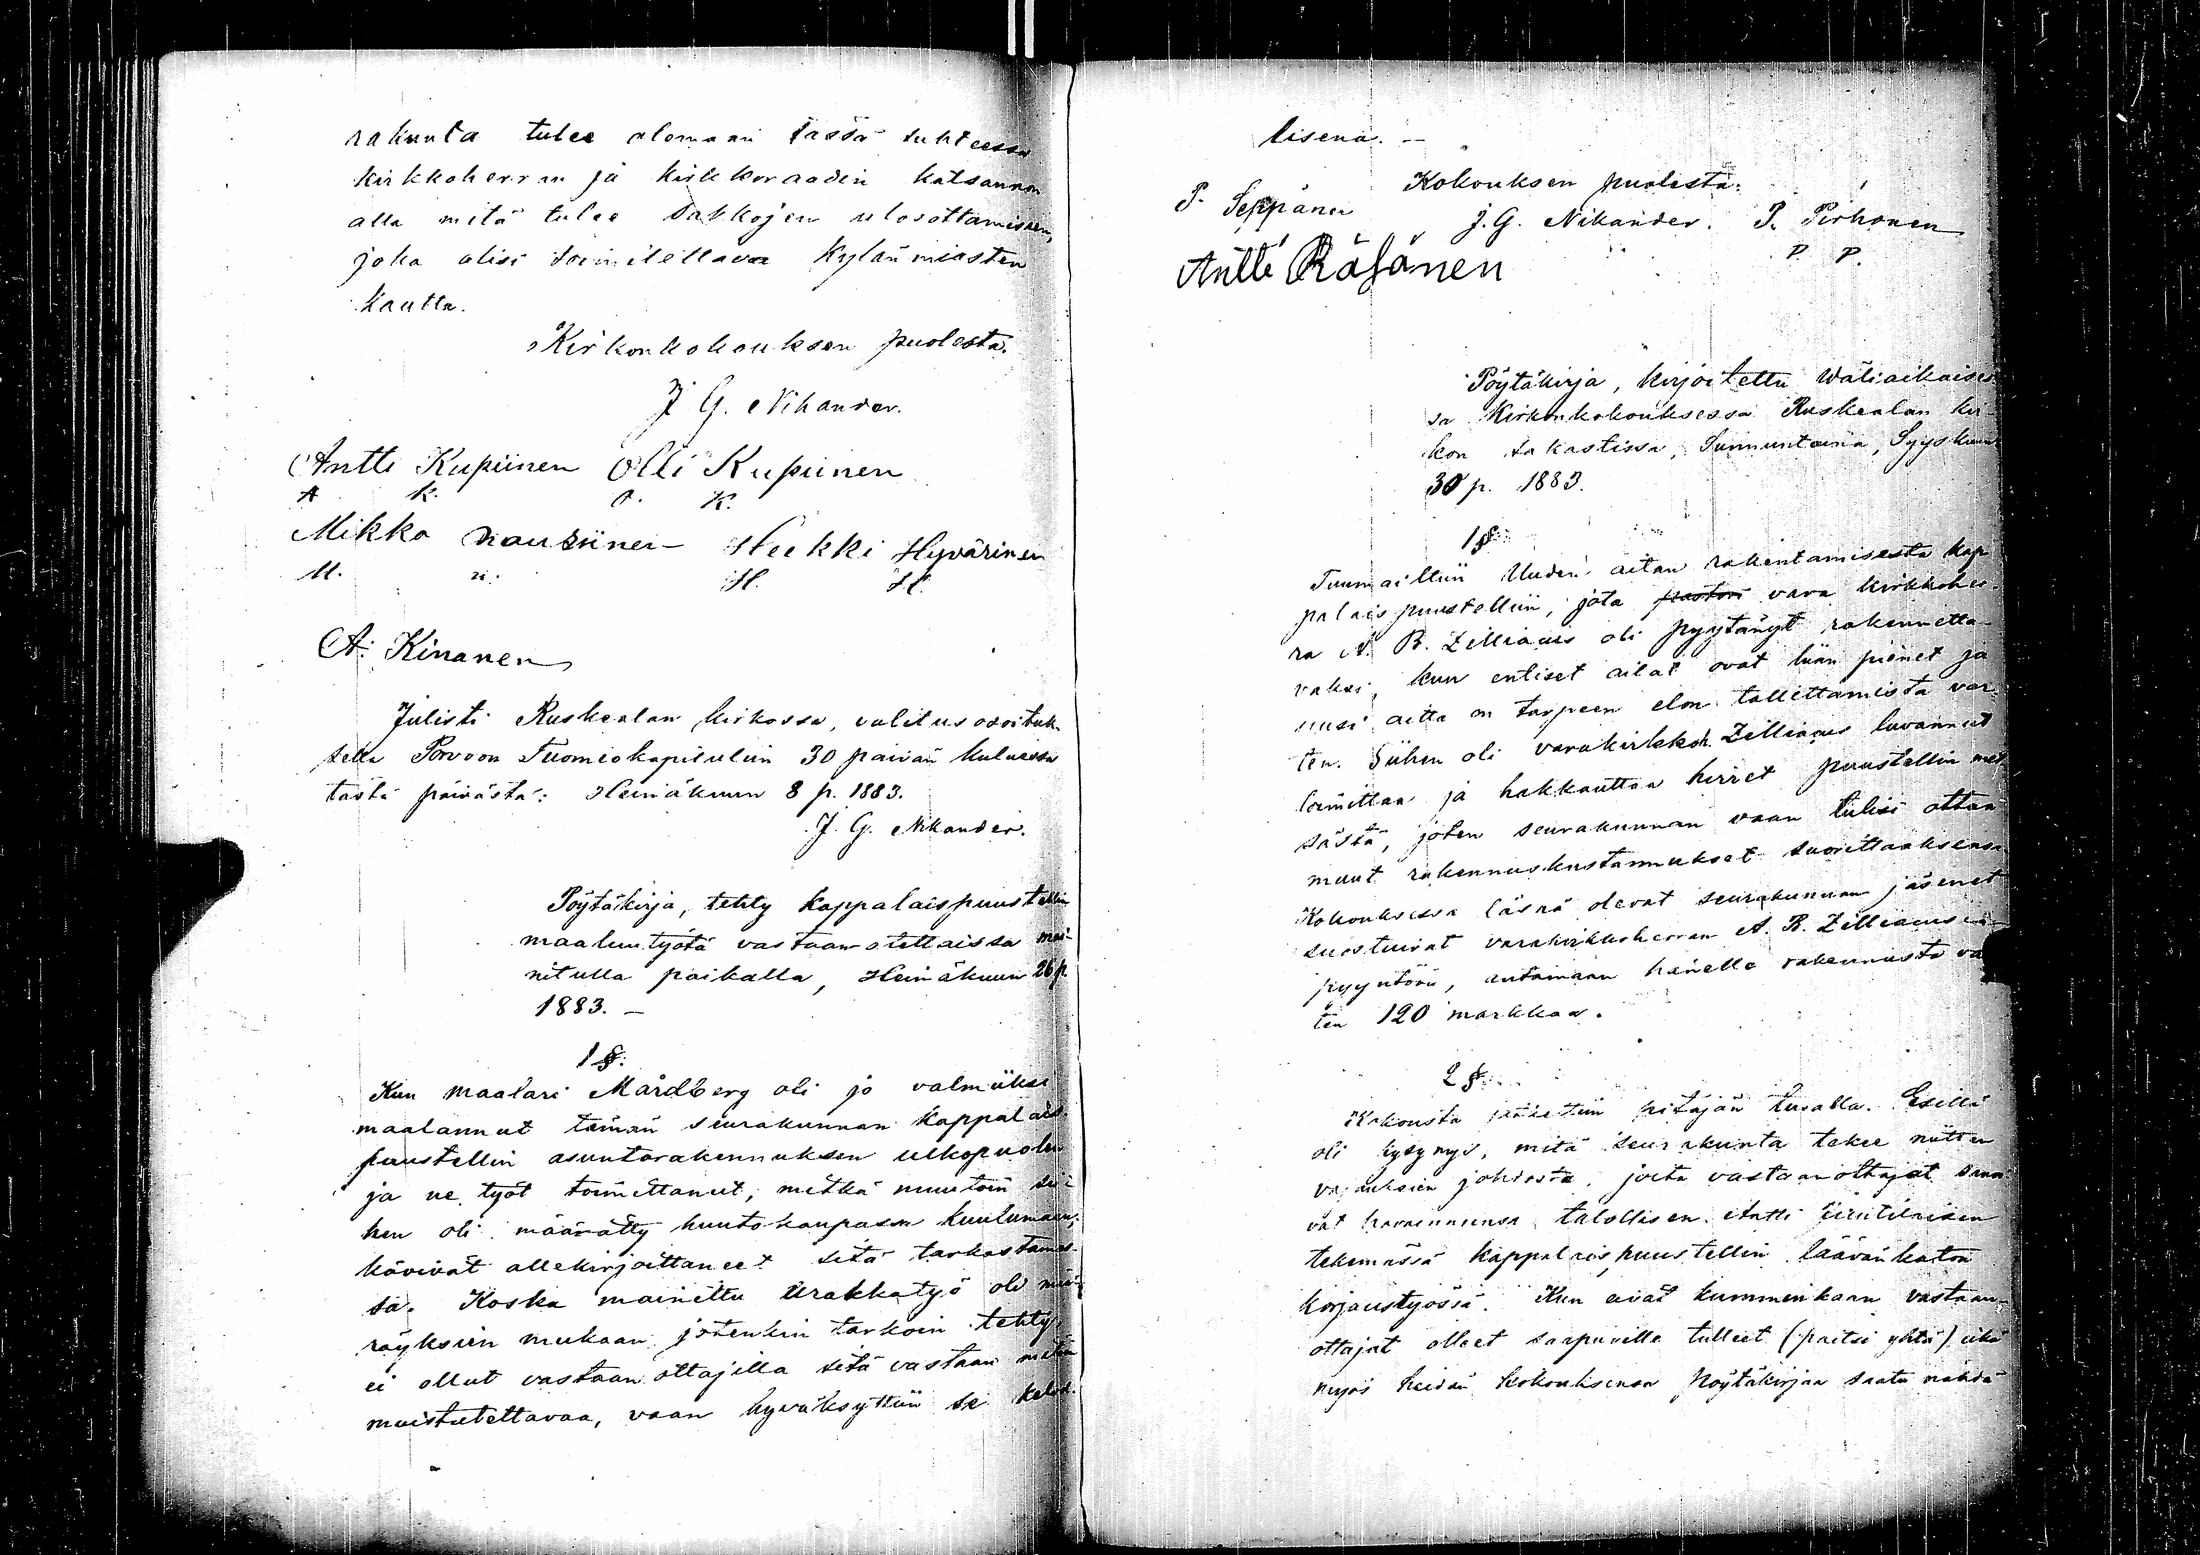 rakunta tulee olemaan tässä suhteessa
kirkkoherran ja kirkkoraadin katsannon
alla mitä tulee sakkojen ulosottamiseen,
joka olisi toimitettava kylänmiesten
kautta.
Kirkonkokouksen puolesta.
J. G. Nikander.
Antti Kupiinen Olli Kupiinen
A K. O. K.
Mikko Nousiinen Heikki Hyvärinen
M. N. H. H.
A. Kinanen
Julisti Ruskealan kirkossa, valitusosoituk-
sella Porvoon Tuomiokapituliin 30 päivän kuluessa
tästä päivästä: Heinäkuun 8 p. 1883.
J. G. Nikander.
Pöytäkirja, tehty kappalaispuustellin
maaluutyötä vastaan otettaissa mai-
nitulla paikalla, Heinäkuun 26 p.
1883. —
1 §.
Kun maalari Mårdberg oli jo valmiiksi
maalannut tämän seurakunnan kappalais-
puustellin asuntorakennuksen ulkopuolen
ja ne työt toimittanut, mitkä muutoin sii-
hen oli määrätty huutokaupassa kuulumaan;
kävivät allekirjoittaneet sitä tarkastamas-
sa. Koska mainittu urakkatyö oli mää-
räyksien mukaan jotenkin tarkoin tehty
ei ollut vastaan ottajilla sitä vastaan mitään
muistutettavaa, vaan hyväksyttiin se kelvol-
lisena. —
Kokouksen puolesta:
P. Seppänen J. G. Nikander. P. Pirhonen
P. P.
Antti Räsänen
Pöytäkirja, kirjoitettu väliaikaises-
sa Kirkonkokouksessa Ruskealan kir-
kon sakastissa, Sunnuntaina, Syyskuun
30 p. 1883.
1 §.
Tuumailtiin Uuden aitan rakentamisesta kap-
palaispuustelliin, jota pastori vara kirkkoher-
ra A. B. Zilliacus oli pyytänyt rakennetta-
vaksi, kun entiset aitat ovat liian pienet ja
uusi aitta on tarpeen elon tallettamista var-
ten. Siihen oli varakirkkoh. Zilliacus luvannut
toimittaa ja hakkauttaa hirret puustellin met-
sästä, joten seurakunnan vaan tulisi ottaa
muut rakennuskustannukset suorittaaksensa
Kokouksessa läsnä olevat seurakunnan jäsenet
suostuivat varakirkkoherran A. B. Zilliacus'en
pyyntöön, antamaan hänelle rakennusta var
ten 120 markkaa.
2 §.
Kokousta pitäjän tuvalla. Esillä
oli kysymys, mitä seurakunta tekee niitten
vajauksien johdosta, joita vastaanottajat
vat talollisen Antti
tekemässä kappalaispuustellin läävän katon
korjaustyössä. Kun eivät kummenkaan vastaan-
ottajat olleet saapuville tulleet (paitsi yhtä) eikä
myös heidän kokouksensa pöytäkirjaa saatu nähdä